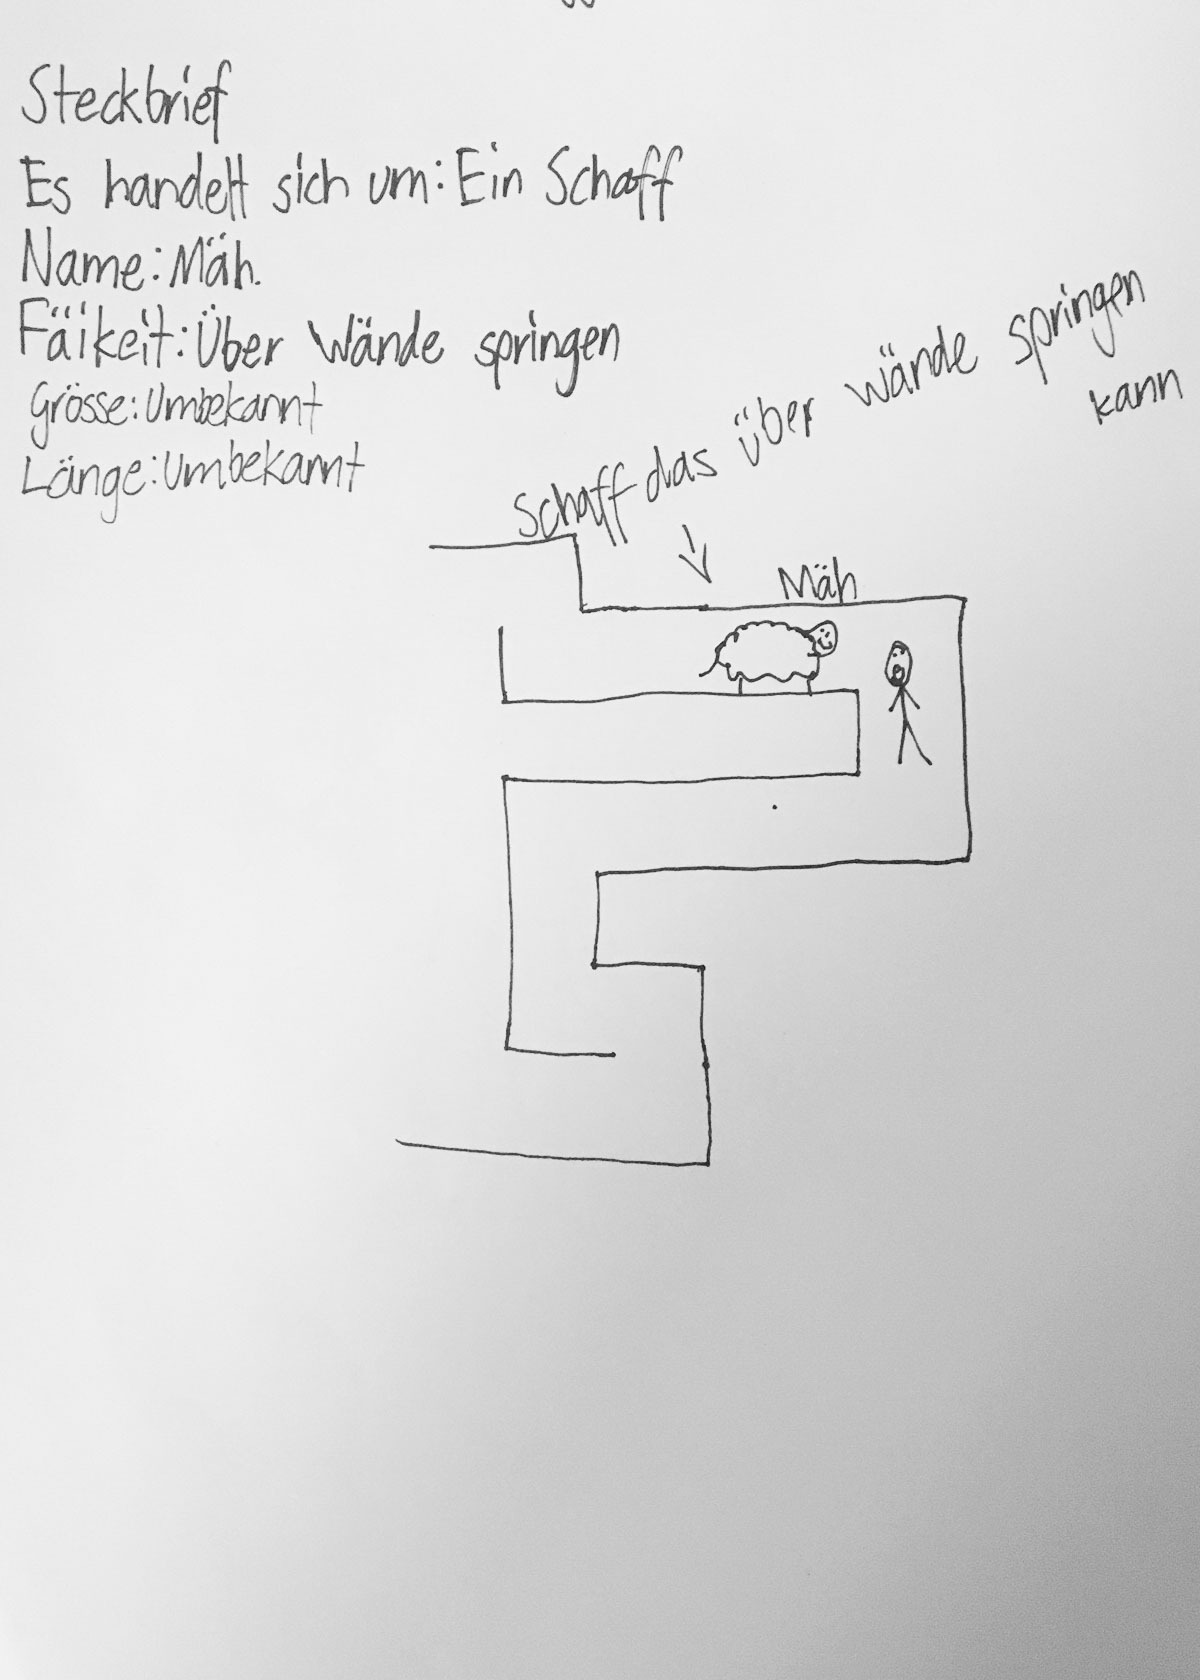 Steckbrief
Es handelt sich um: Ein Schaff
Name: Mäh.
Fäikeit: Über Wände springen
Grösse: Umbekannt
Länge: Umbekannt
Schaff das über wände springen
kann
Mäh